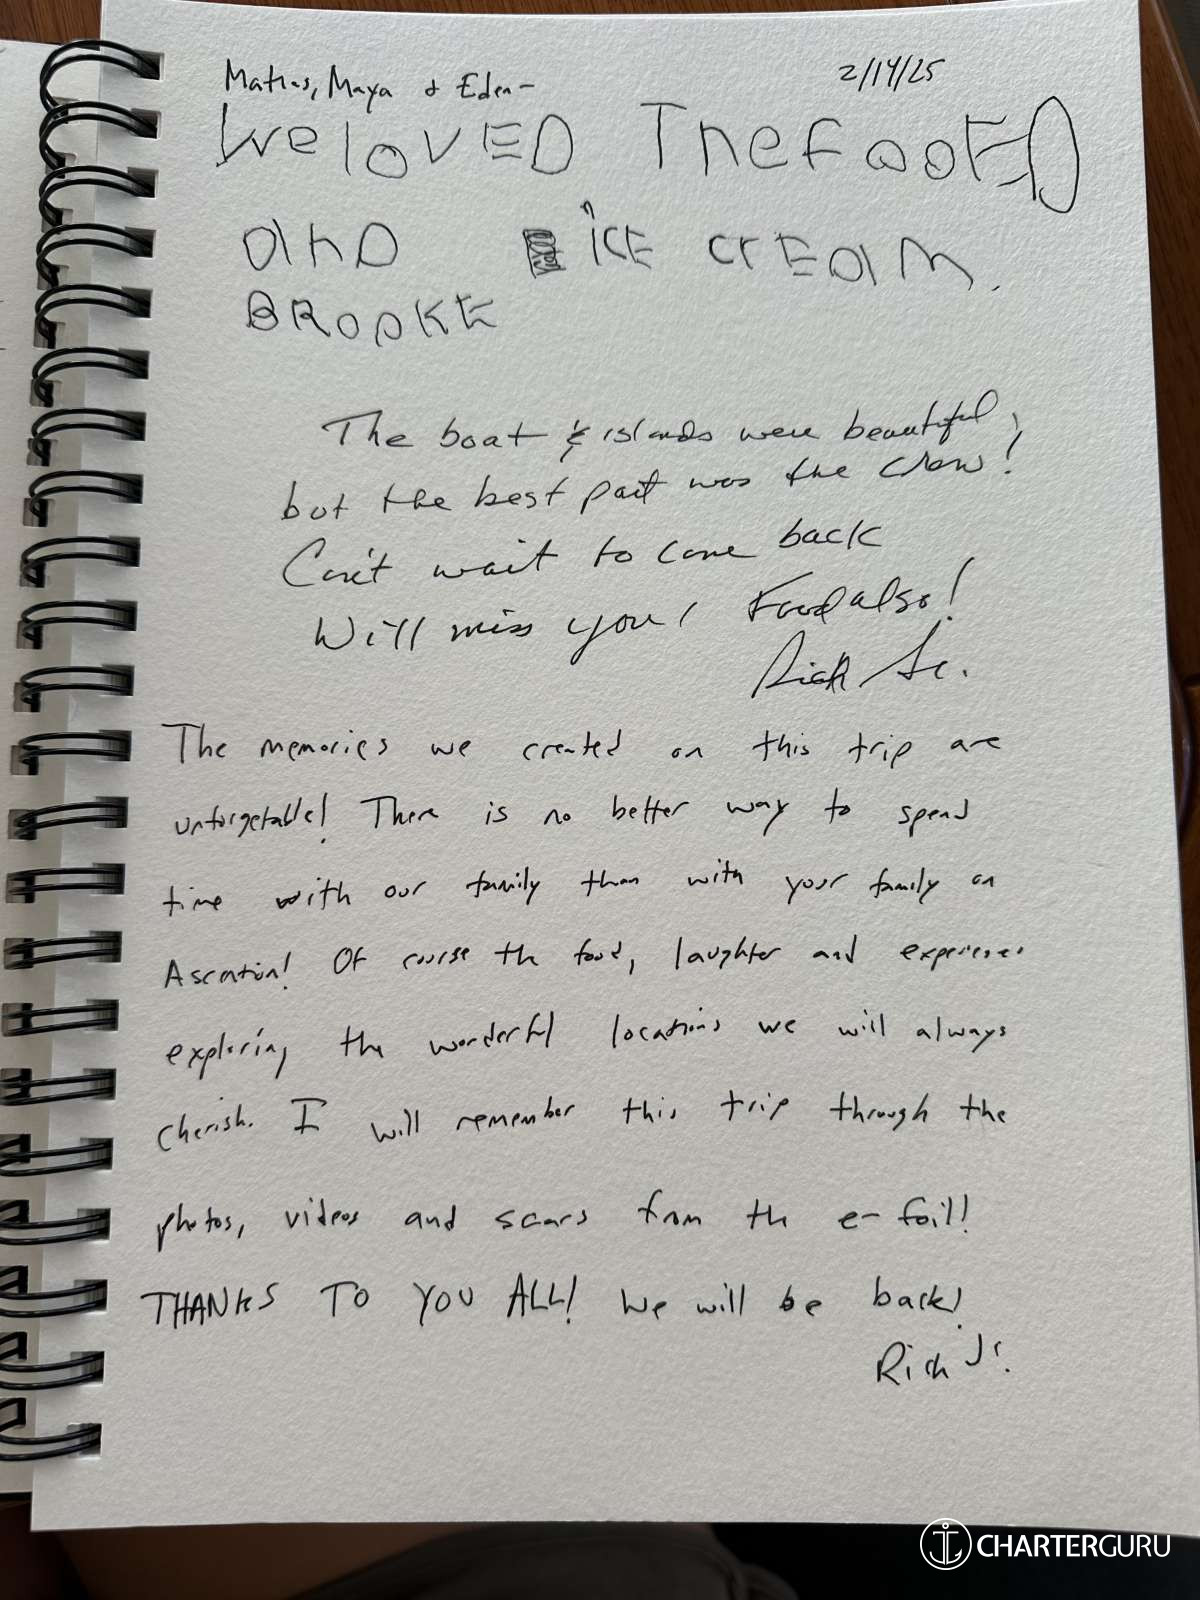 Matias, Maya & Eden – 2/14/25
We loVED The fooED
anD iCE CrEam.
BROOKE
The boat & islands were beautiful,
but the best part was the crew!
Can't wait to come back
Will miss you! Food also!
Rich Sr.
The memories we created on this trip are
unforgetable! There is no better way to spend
time with our family than with your family on
Ascention! Of course the food, laughter and experiences
exploring the wonderful locations we will always
cherish. I will remember this trip through the
photos, videos and scars from the e-foil!
THANKS TO YOU ALL! We will be back!
Rich Jr.
CHARTERGURU